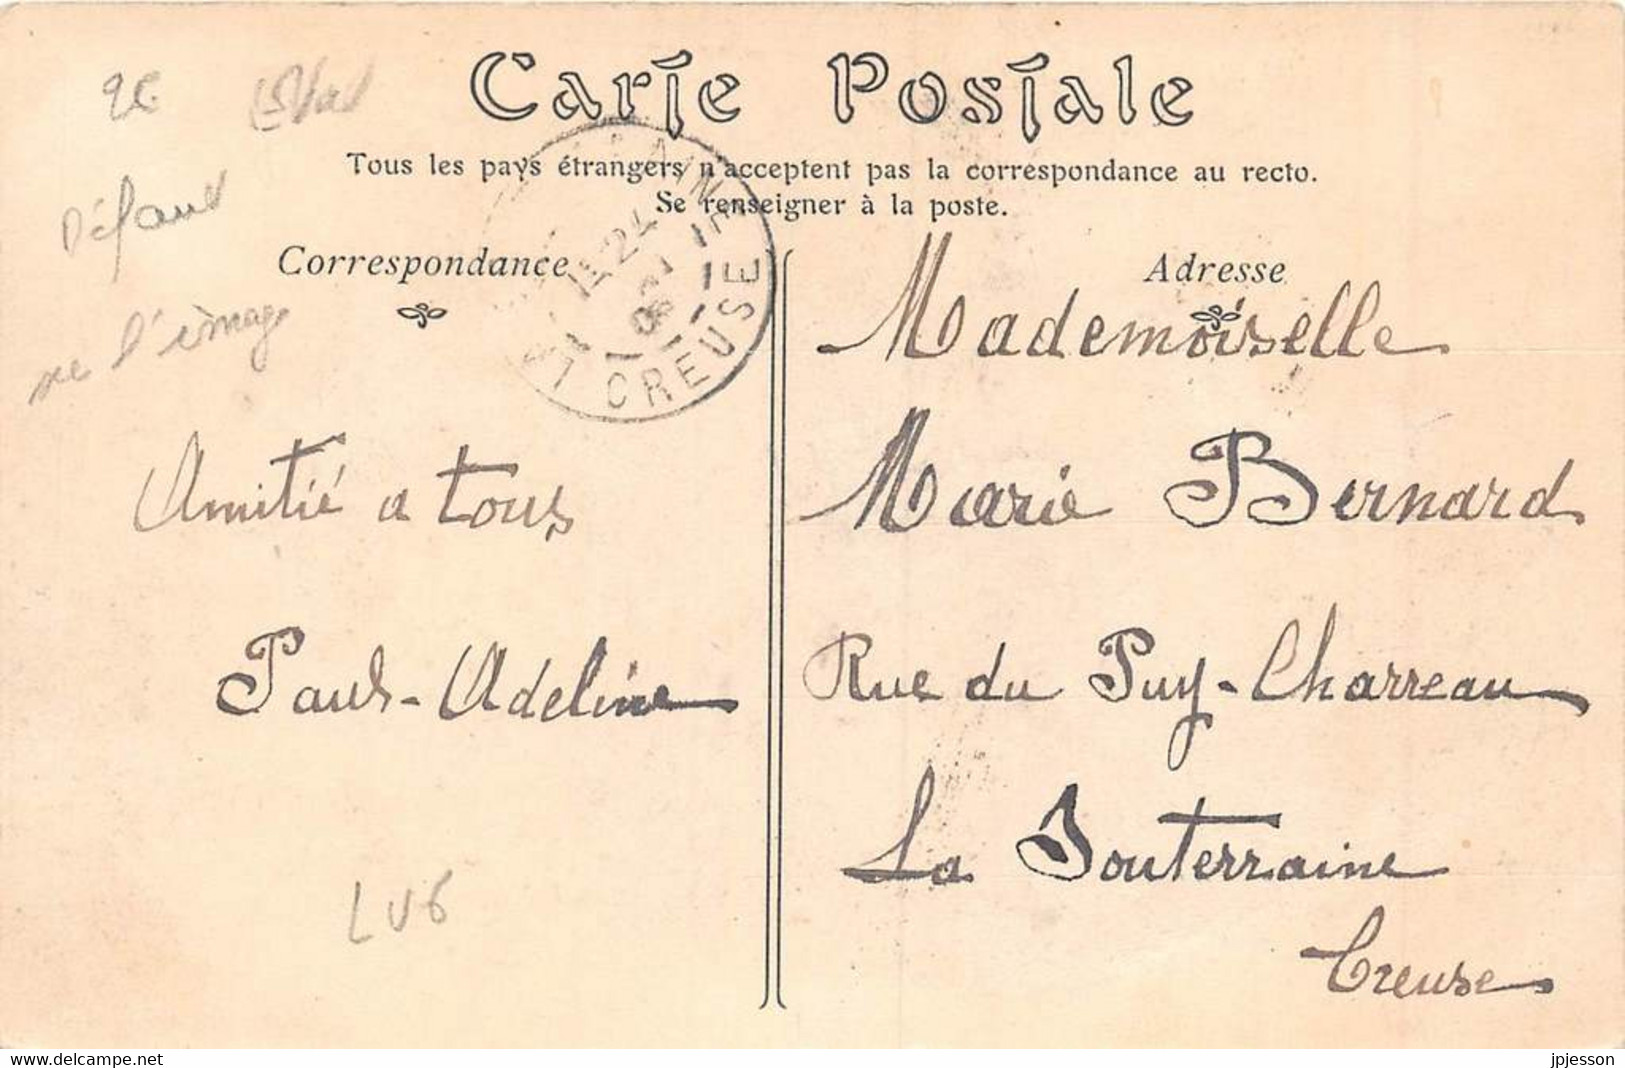 Carte Postale
Tous les pays étrangers n'acceptent pas la correspondance au recto.
Se renseigner à la poste.
Correspondance
Adresse
2€
Défaut
l'image
CREUSE
24
08
Amitié a tous
Paul-Adeline
LV6
Mademoiselle
Marie Bernard
Rue du Puy-Charreau
La Souterraine
Creuse
www.delcampe.net
jpjesson